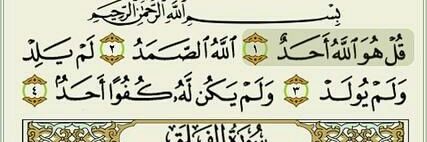 بِسْمِ ٱللَّهِ ٱلرَّحْمَٰنِ ٱلرَّحِيمِ
قُلْ هُوَ ٱللَّهُ أَحَدٌ ١ ٱللَّهُ ٱلصَّمَدُ ٢ لَمْ يَلِدْ
وَلَمْ يُولَدْ ٣ وَلَمْ يَكُن لَّهُۥ كُفُوًا أَحَدٌۢ ٤
سُورَةُ الْفَلَقِ